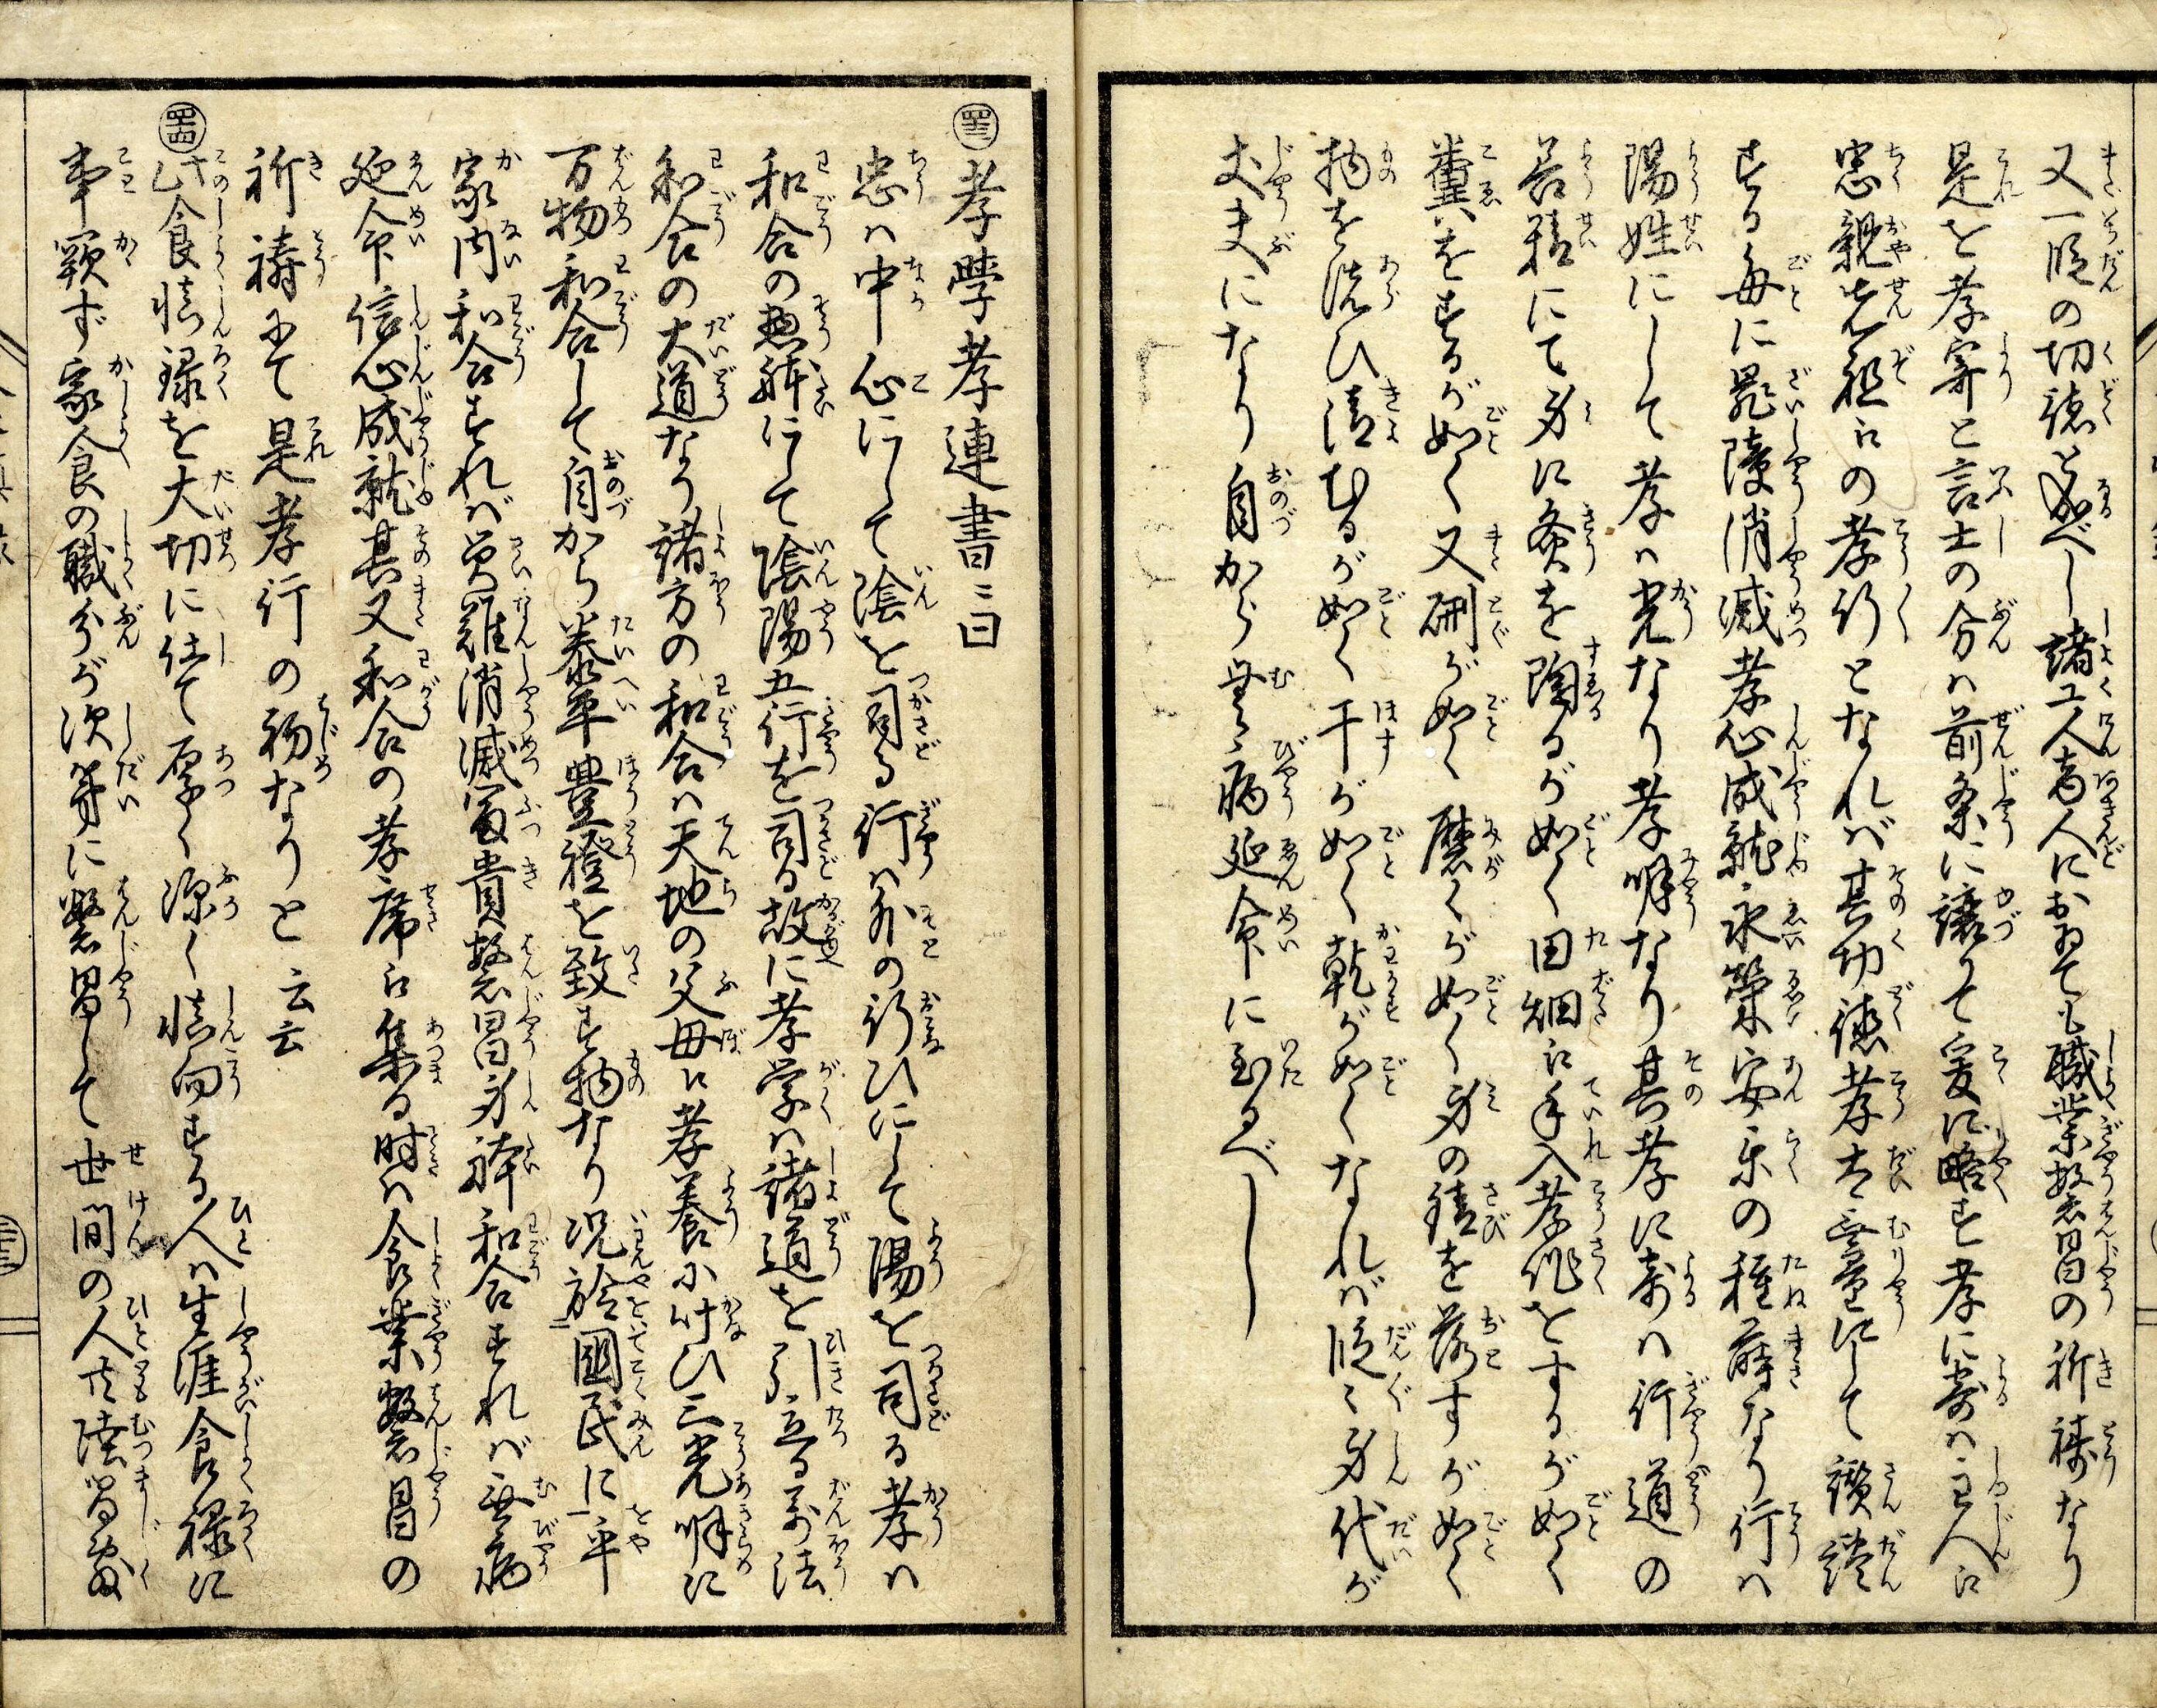 又一段の切徳と成べし諸工人商人におゐても職業繁昌の祈祷なり
是を孝寄と言士の分ハ前条に譲りて爰に略す孝に寄ハ主人に
忠親先祖江の孝行となれバ其功徳孝大無量にして讃談
する毎に罪障消滅孝心成就永栄安楽の種蒔なり行ハ
陽姓にして孝ハ光なり孝明なり其孝に寄ハ行道の
養精にて身に灸を陶るが如く田畑江手入孝作をするが如く
糞を走るが如く又硎が如く磨くが如く身の錆を落すが如く
物を洗ひ清むるが如く干が如く乾が如くなれバ段〻身代が
丈夫になり自から無病延命に至るべし
四三
孝學孝連書ニ曰
忠ハ中心にして陰を司る行ハ外の行ひにして陽を司る孝ハ
和合の惣躰にして陰陽五行を司る故に孝学ハ諸道を引立る万法
和合の大道なり諸方の和合ハ天地の父母江孝養に叶ひ三光明に
万物和合して自から泰平豊穣を致す物なり況於國民に平
家内和合すれバ災難消滅富貴繁昌身躰和合すれバ無病
延命信心成就其又和合の孝席江集る時ハ食業繁昌の
祈祷にて是孝行の初なりと云云
四四
此食慎録を大切に仕て厚く深く慎向する人ハ生涯食禄に
事窺ず家食の職分が次第に繁昌して世間の人共陸